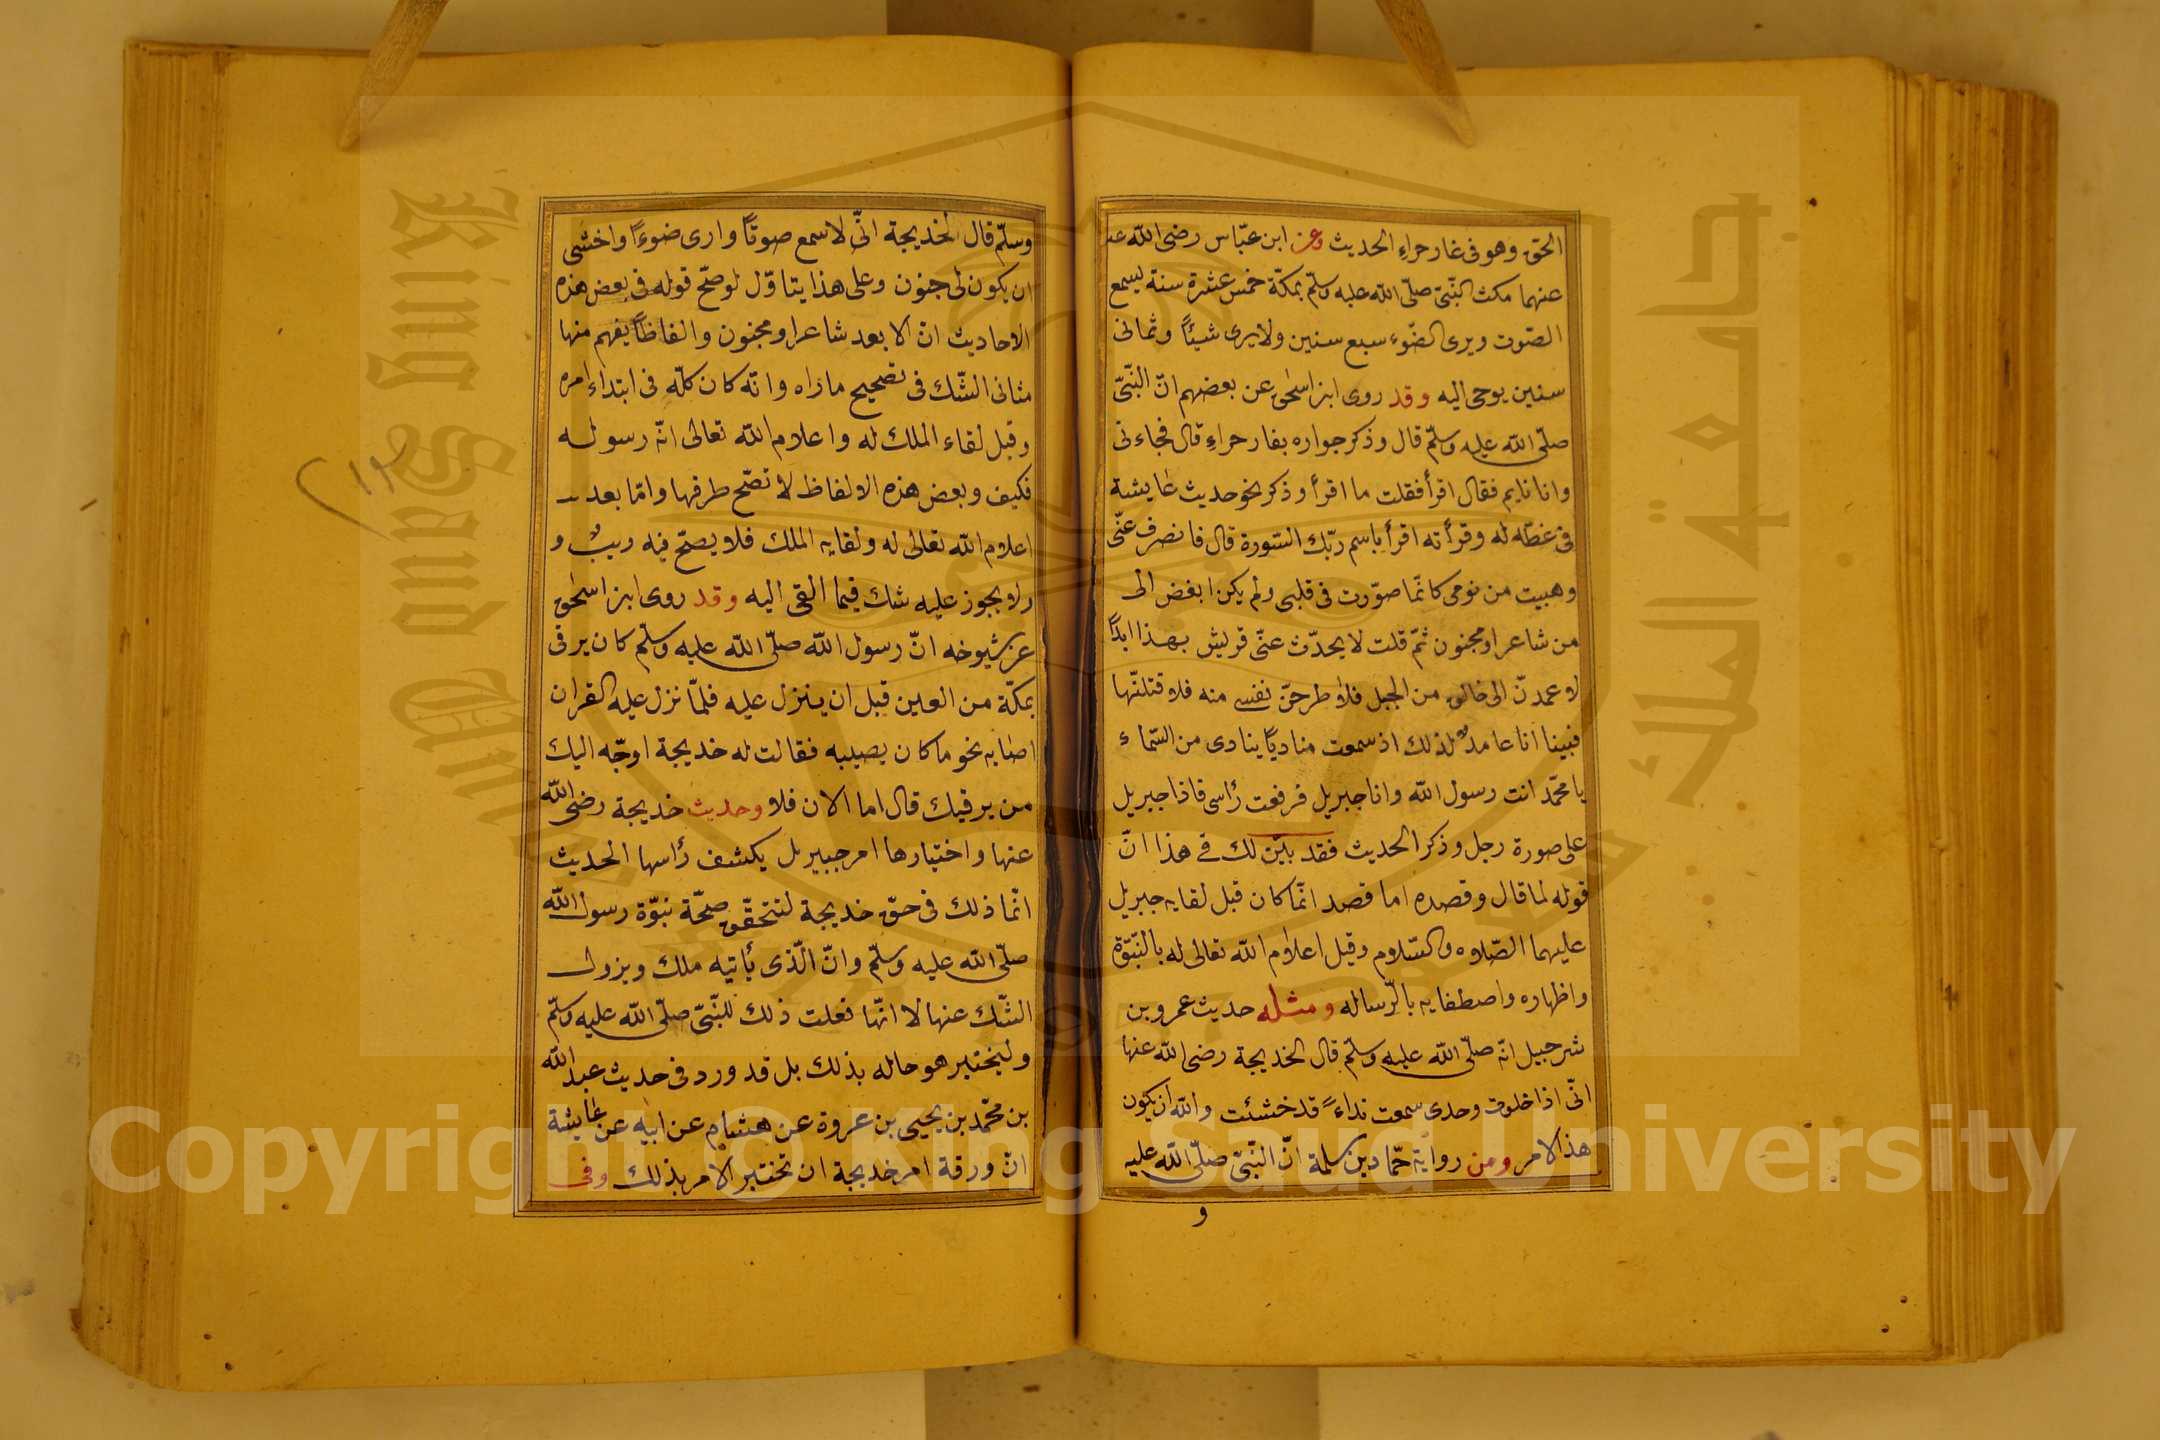 الحق وهو فى غار حراء الحديث وعن ابن عبّاس رضى الله
عنهما مكث النّبىّ صلّى الله عليه وسلّم بمكّة خمس عشرة سنة يسمع
الصّوت ويرى الضّوء سبع سنين ولا يرى شيئاً وثمانى
سنين يوحى اليه وقد روى ابن اسحٰق عن بعضهم انّ النّبىّ
صلّى الله عليه وسلّم قال وذكر جواره بغار حراء قال فجاءنى
وانا نايم فقال اقرأ فقلت ما اقرأ وذكر نحو حديث عايشة
فى غطّه له وقرأته اقرأ باسم ربّك السّورة قال فانصرف عنّى
وهببت من نومى كانّما صوّرت فى قلبى ولم يكن ابغض الى
من شاعر او مجنون ثمّ قلت لا يحدّث عنّى قريش بهذا ابداً
لا عمدنّ الى حالق من الجبل فلا طرحنّ نفسى منه فلاقتلنّها
فبينا انا عامدٌ لذلك اذ سمعت منادياً ينادى من السّماء
يا محمّد انت رسول الله وانا جبريل فرفعت رأسى فاذا جبريل
على صورة رجل وذكر الحديث فقد بيّن لك فى هذا انّ
قوله لما قال وقصده اما قصد انّما كان قبل لقايه جبريل
عليهما الصّلاه والسّلام وقبل اعلام الله تعالى له بالنّبّوة
واظهاره واصطفايه بالرّساله ومثله حديث عمرو بن
شرحبيل انّه صلّى الله عليه وسلّم قال لخديجة رضى الله عنها
انّى اذا خلوت وحدى سمعت نداءً قد خشئت والله ان يكون
هذا الامر ومن رواية حمّاد بن سلمة انّ النّبىّ صلّى الله عليه
و
وسلّم قال لخديجة انّى لاسمع صوتاً وارى ضوءاً واخشى
ان يكون لى جنون وعلى هذا يتاوّل لو صحّ قوله فى بعض هذه
الاحاديث انّ الابعد شاعر او مجنون والفاظاً يفهم منها
مثانى الشّك فى تصحيح ماراه وانّه كان كلّه فى ابتداء امره
وقبل لقاء الملك له واعلام الله تعالى انّه رسوله
فكيف وبعض هذه الالفاظ لا تصّح طرقها وامّا بعد
اعلام الله تعالى له ولقايه الملك فلا يصحّ فيه ريبٌ و
ولا يجوز عليه شك فيما القى اليه وقد روى ابن اسحٰق
عن شيوخه انّ رسول الله صلّى الله عليه وسلّم كان يرقى
بمكّة من العين قبل ان ينزل عليه فلمّا نزل عليه القران
اصابه نحو ما كان يصيبه فقالت له خديجة اوجّه اليك
من يرقيك قال اما الان فلا وحديث خديجة رضى الله
عنها واختيارها امر جبيريل بكشف رأسها الحديث
انّما ذلك فى حق خديجة لتتحقّق صحّة نبوّة رسول الله
صلّى الله عليه وسلّم وانّ الّذى يأتيه ملك ويزول
الشّك عنها لا انّها فعلت ذلك للنّبىّ صلّى الله عليه وسلّم
وليختبر هو حاله بذلك بل قد ورد فى حديث عبد الله
بن محمّد بن يحيى بن عروة عن هشام عن ابيه عن عايشة
انّ ورقة امر خديجة ان تختبر الامر بذلك وفى
جامعة الملك سعود
King Saud University
Copyright © King Saud University